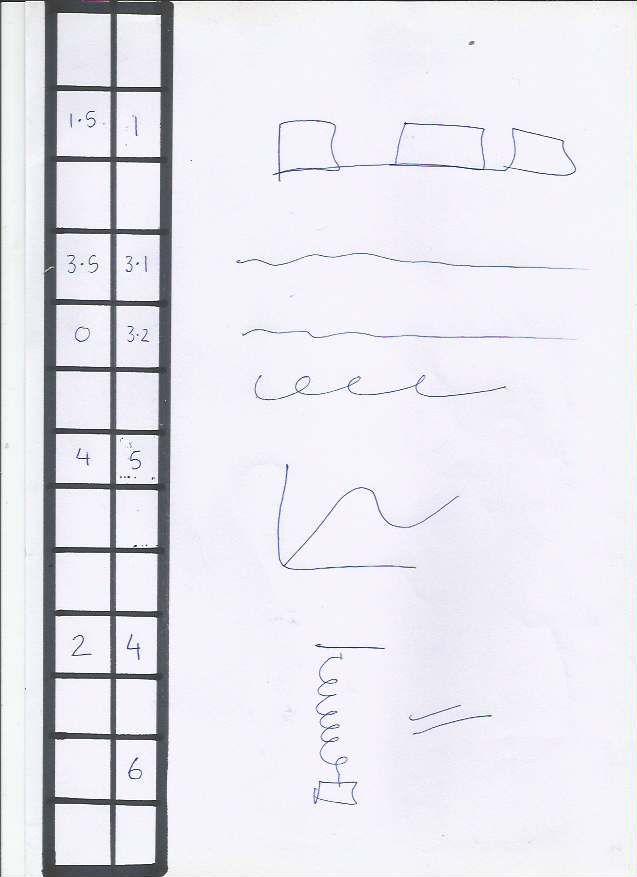 1.5 1
3.5 3.1
0 3.2
4 5
2 4
6